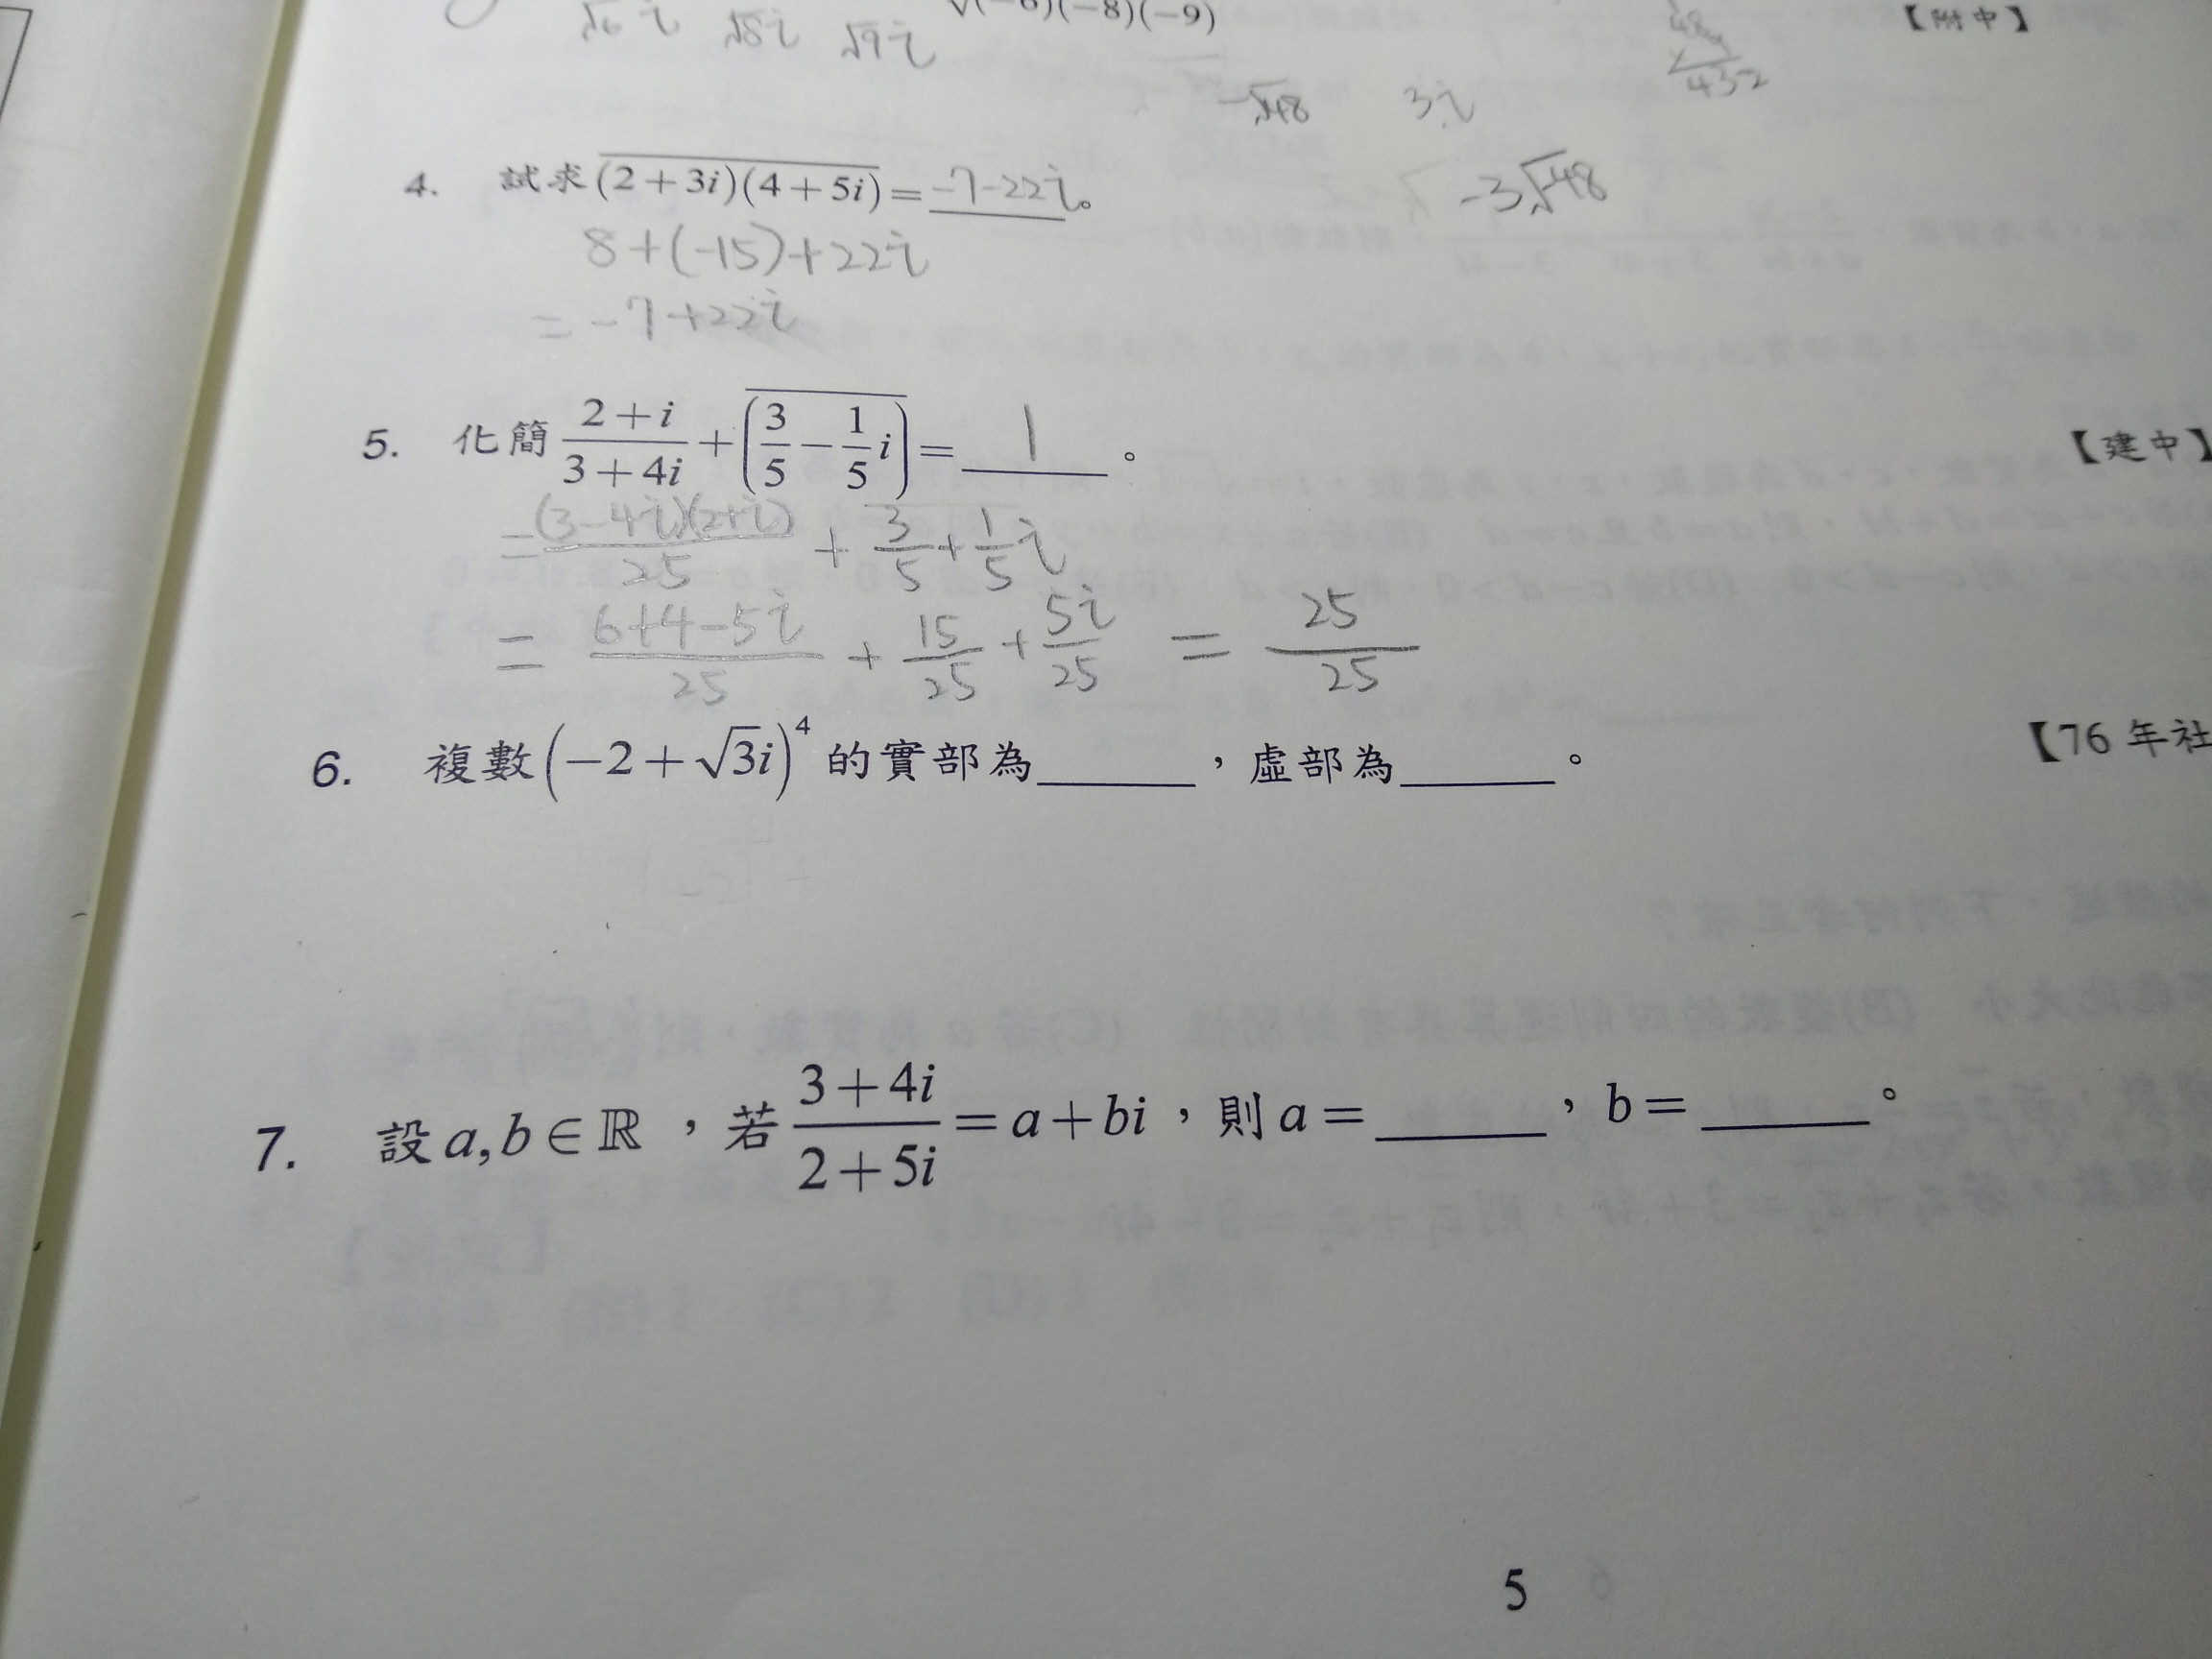 √6 i √8 i √9 i √(−6)(−8)(−9) 【附中】
48
432
−√48 3i
4. 試求(2+3i)(4+5i)=-7-22i。 -3√-48
8+(-15)+22i
=-7+22i
5. 化簡 (2+i)/(3+4i) + (3/5−1/5 i) = 1 。 【建中】
= (3-4i)(2+i)/25 + 3/5 + 1/5 i
= (6+4-5i)/25 + 15/25 + 5i/25 = 25/25
6. 複數(−2+√3i)⁴的實部為______,虛部為______。 【76 年社
7. 設a,b∈ℝ,若 (3+4i)/(2+5i) =a+bi,則a=______,b=______。
5